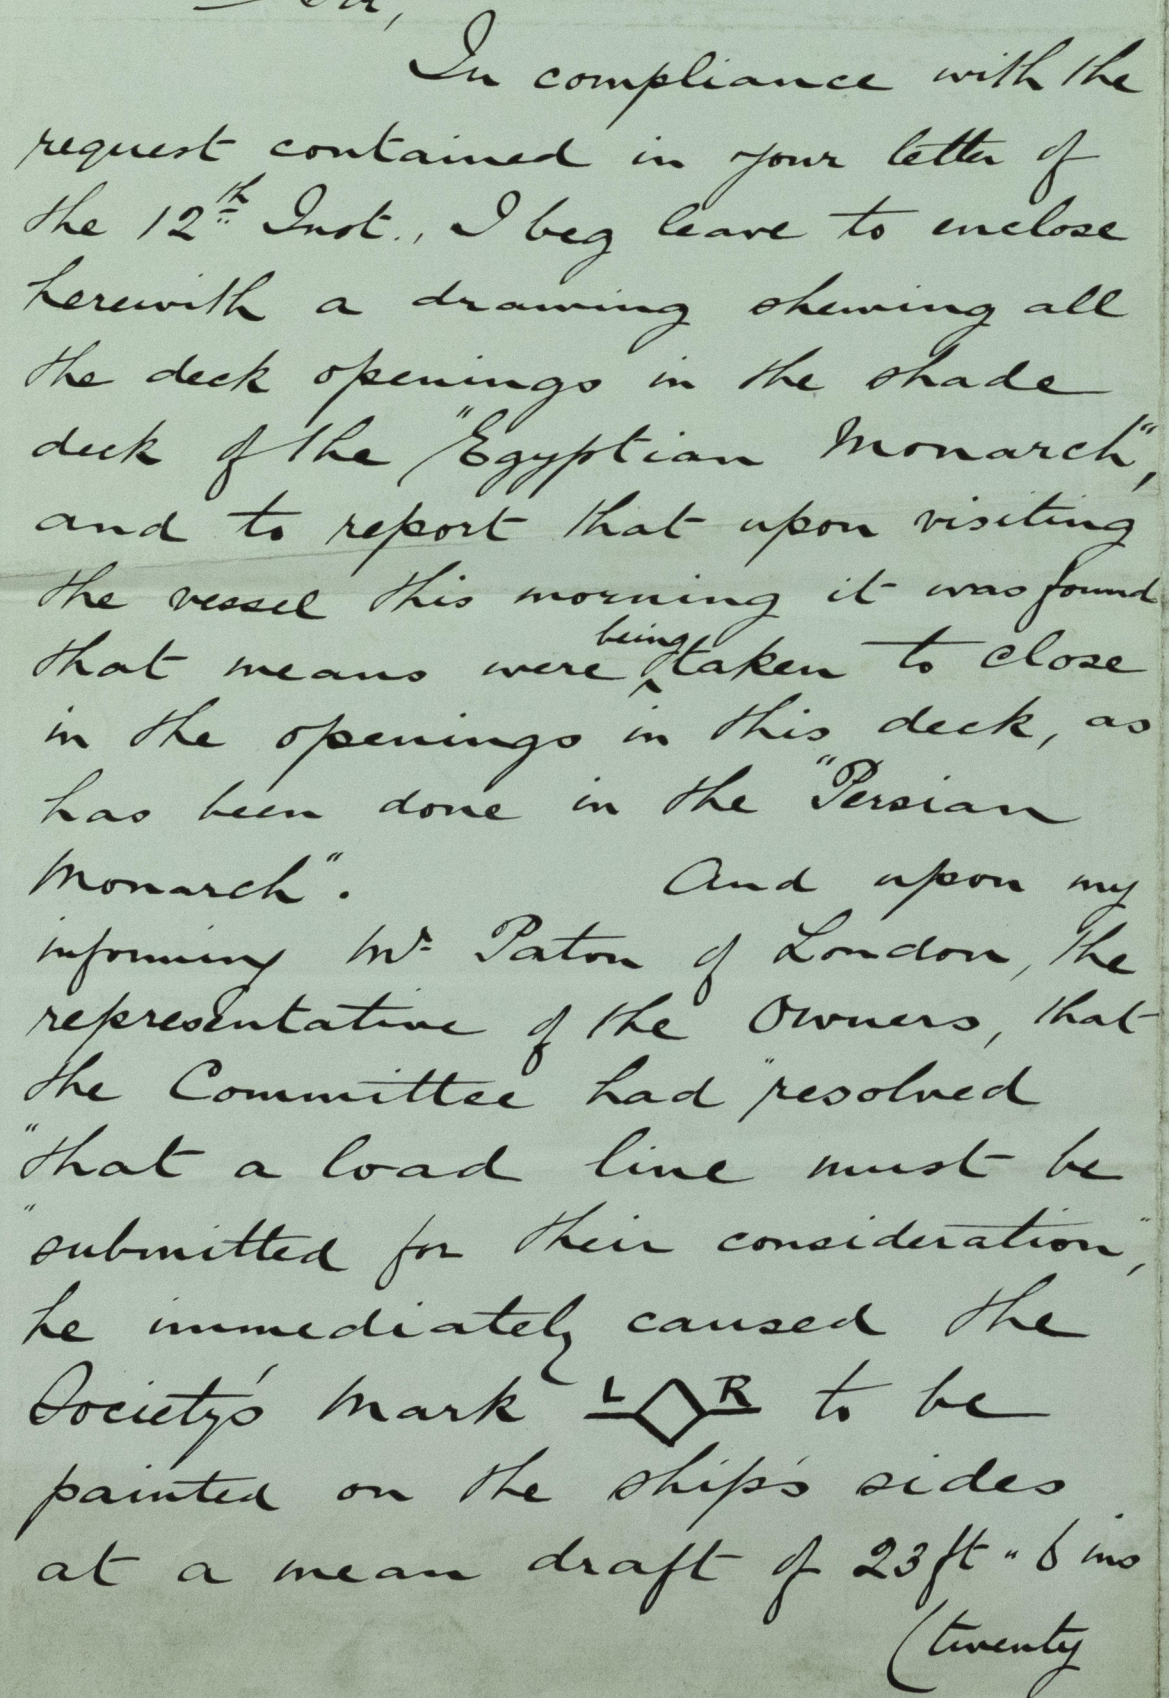 Sir,
In compliance with the
request contained in your letter of
the 12th Inst., I beg leave to enclose
herewith a drawing shewing all
the deck openings in the shade
deck of the "Egyptian Monarch",
and to report that upon visiting
the vessel this morning it was found
that means were being taken to close
in the openings in this deck, as
has been done in the "Persian
Monarch". And upon my
informing Mr Paton of London, the
representative of the Owners, that
the Committee had "resolved
"that a load line must be
"submitted for their consideration",
he immediately caused the
Society's Mark L R to be
painted on the ship's sides
at a mean draft of 23 ft " 6 ins
(twenty